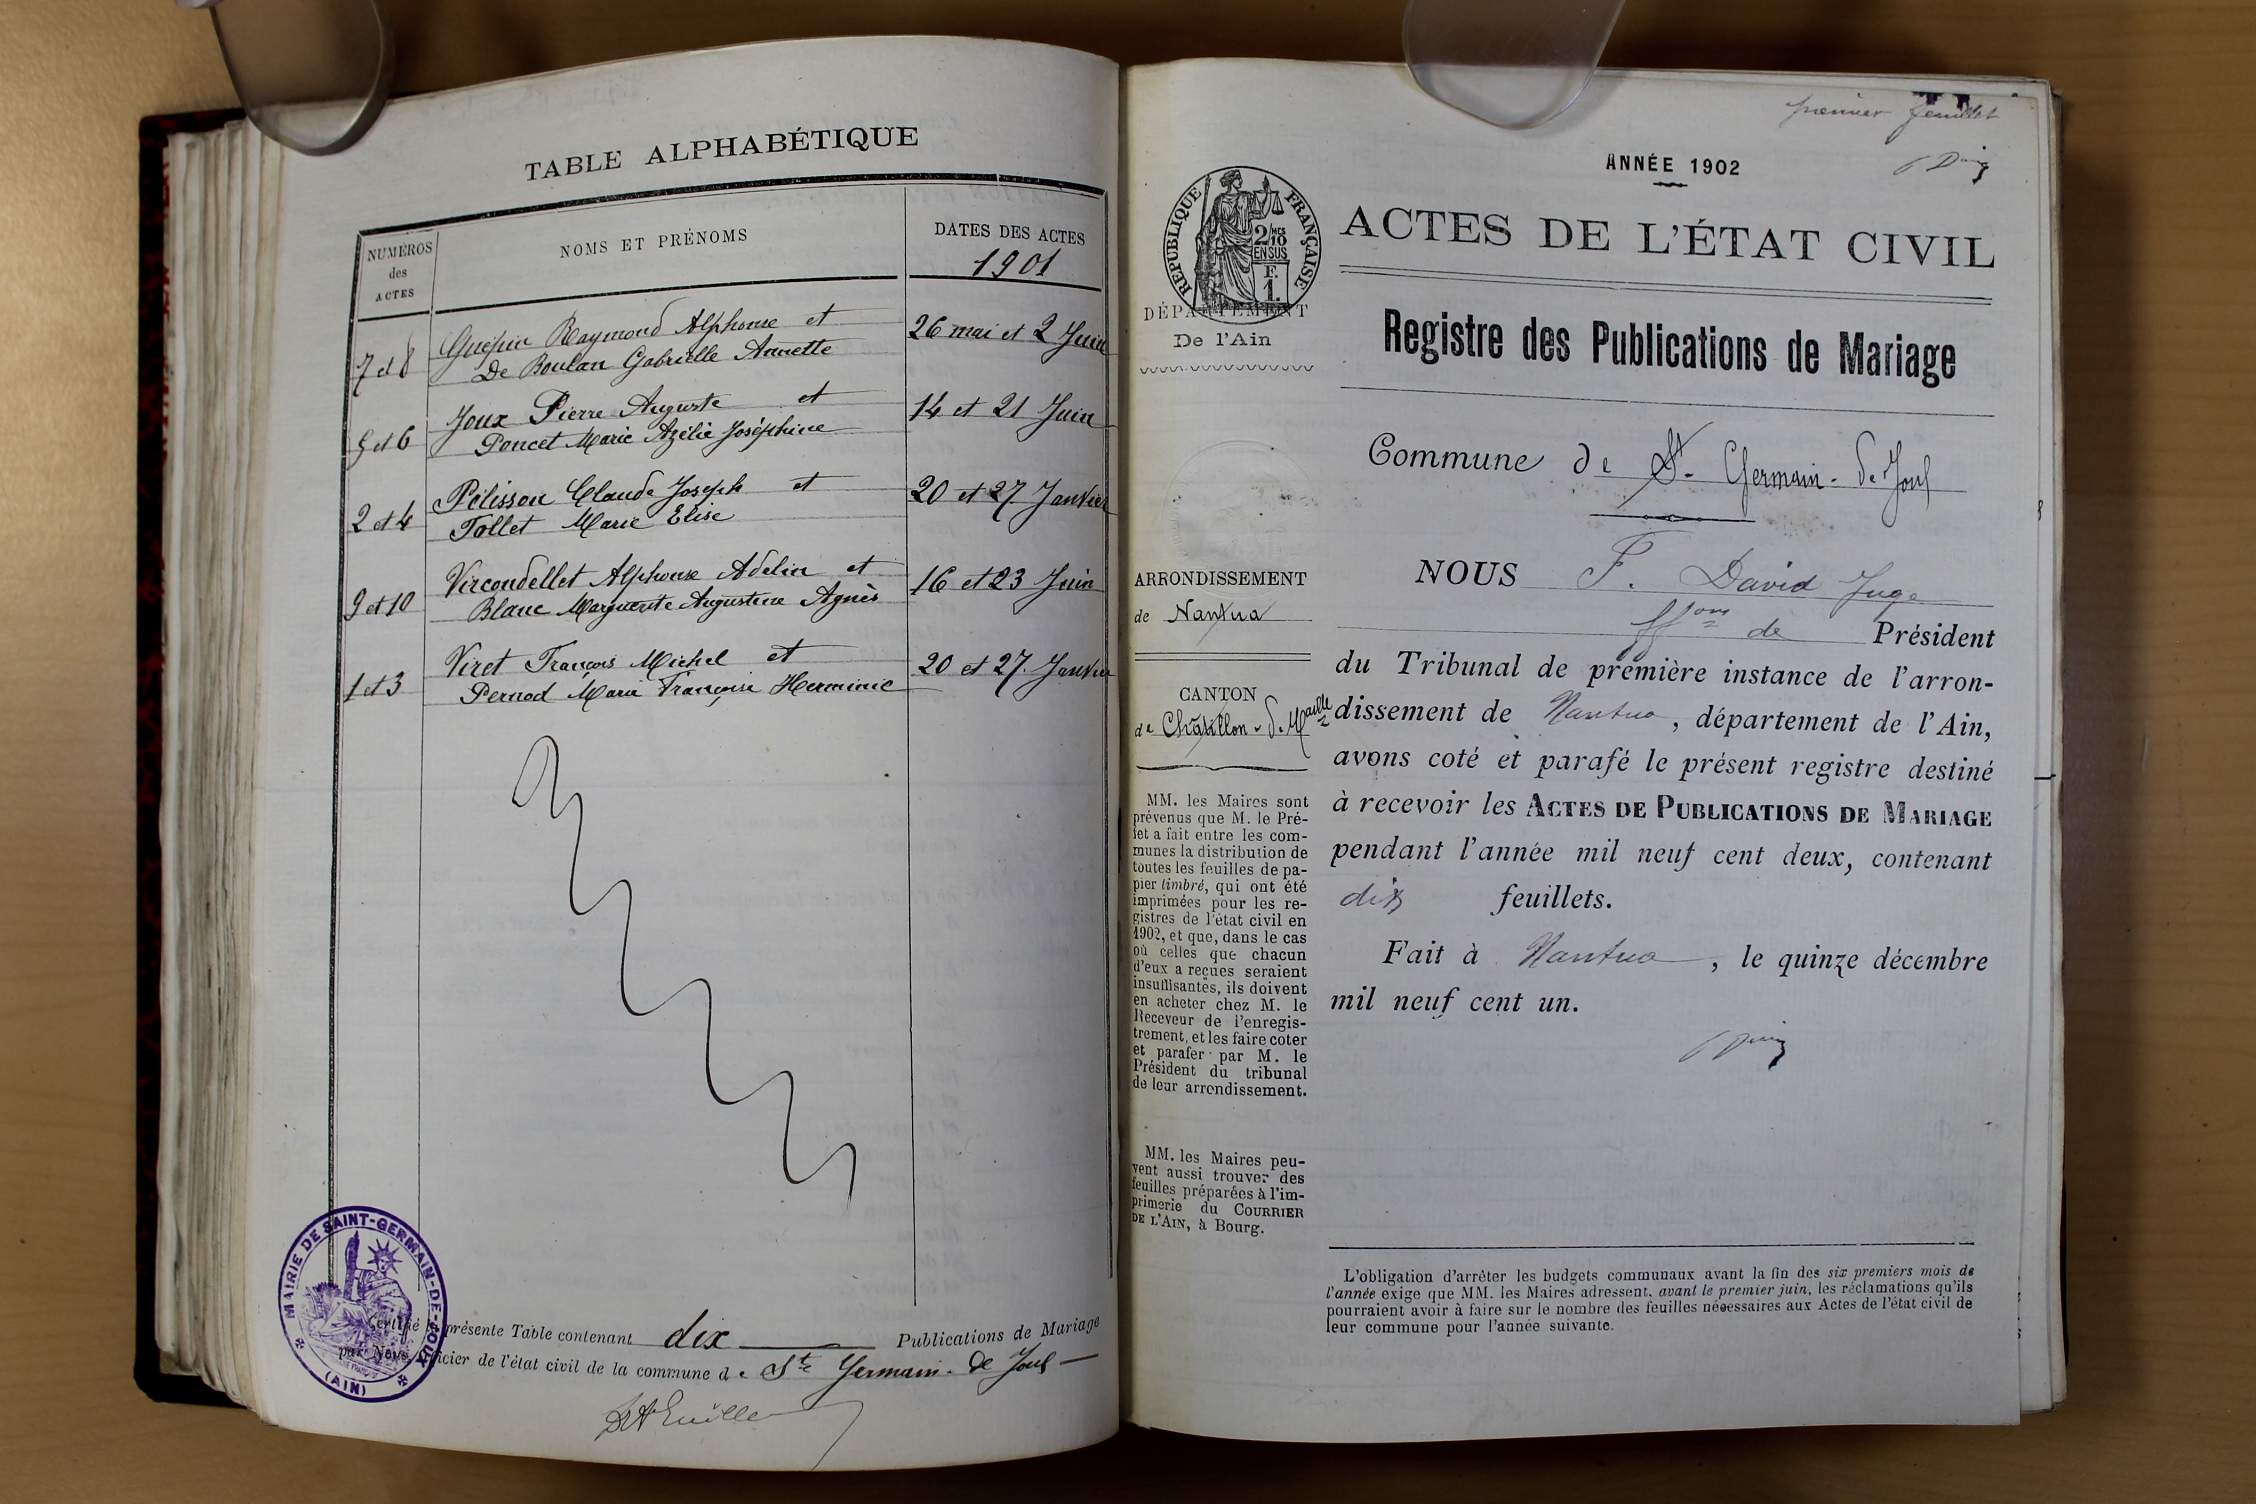 TABLE ALPHABÉTIQUE
NUMÉROS
des
ACTES
NOMS ET PRÉNOMS
DATES DES ACTES
1901
7 et 8
Guépin Raymond Alphonse et
De Boulan Gabrielle Annette
26 mai et 2 Juin
5 et 6
Joux Pierre Auguste et
Poncet Marie Azélie Joséphine
14 et 21 Juin
2 et 4
Pélisson Claude Joseph et
Tollet Marie Elise
20 et 27 Janvier
9 et 10
Vircondellet Alphonse Adelin et
Blanc Marguerite Augustine Agnès
16 et 23 Juin
1 et 3
Viret François Michel et
Pernod Marie Françoise Herminie
20 et 27 Janvier
MAIRIE DE SAINT-GERMAIN-DE-JOUX
(AIN)
Certifié présente Table contenant dix Publications de Mariage
par Nous Officier de l'état civil de la commune de St Germain-de Joux
premier feuillet
ANNÉE 1902
RÉPUBLIQUE FRANÇAISE
2/10
EN SUS
F.
1.
ACTES DE L'ÉTAT CIVIL
DÉPARTEMENT
De l'Ain
Registre des Publications de Mariage
Commune de St-Germain-de-Joux
ARRONDISSEMENT
de Nantua
CANTON
de Chatillon-de-Maille
MM. les Maires sont
prévenus que M. le Pré-
fet a fait entre les com-
munes la distribution de
toutes les feuilles de pa-
pier timbré, qui ont été
imprimées pour les re-
gistres de l'état civil en
1902, et que, dans le cas
où celles que chacun
d'eux a reçues seraient
insuffisantes, ils doivent
en acheter chez M. le
Receveur de l'enregis-
trement, et les faire coter
et parafer par M. le
Président du tribunal
de leur arrondissement.
MM. les Maires peu-
vent aussi trouver des
feuilles préparées à l'im-
primerie du COURRIER
DE L'AIN, à Bourg.
NOUS F. David Juge
ffons de Président
du Tribunal de première instance de l'arron-
dissement de Nantua, département de l'Ain,
avons coté et parafé le présent registre destiné
à recevoir les ACTES DE PUBLICATIONS DE MARIAGE
pendant l'année mil neuf cent deux, contenant
dix feuillets.
Fait à Nantua, le quinze décembre
mil neuf cent un.
L'obligation d'arrêter les budgets communaux avant la fin des six premiers mois de
l'année exige que MM. les Maires adressent, avant le premier juin, les réclamations qu'ils
pourraient avoir à faire sur le nombre des feuilles nécessaires aux Actes de l'état civil de
leur commune pour l'année suivante.